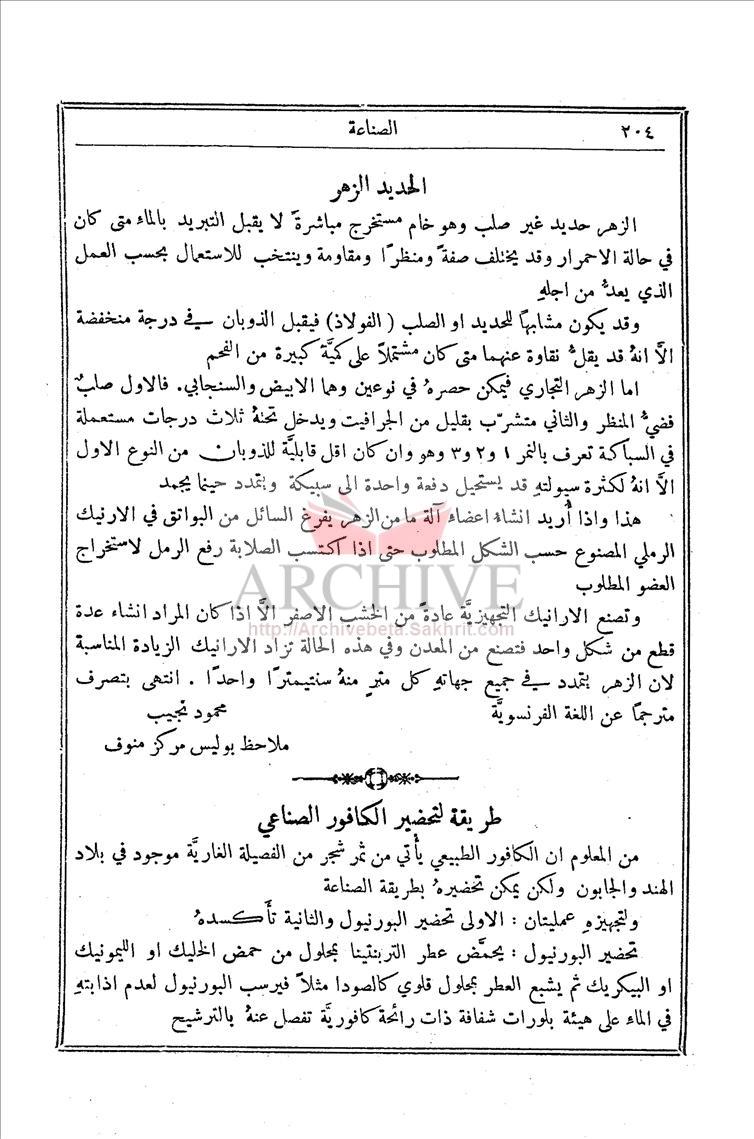 ٢٠٤ الصناعة
الحديد الزهر
الزهر حديد غير صلب وهو خام مستخرج مباشرةً لا يقبل التبريد بالماء متى كان
في حالة الاحمرار وقد يختلف صفةً ومنظرًا ومقاومة وينتخب للاستعمال بحسب العمل
الذي يعدُّ من اجلهِ
وقد يكون مشابهًا للحديد او الصلب ( الفولاذ ) فيقبل الذوبان في درجة منخفضة
الَّا انهُ قد يقلُّ نقاوة عنهما متى كان مشتملًا على كميَّة كبيرة من الفحم
اما الزهر التجاري فيمكن حصرهُ في نوعين وهما الابيض والسنجابي. فالاول صلبٌ
فضيُّ المنظر والثاني متشرّب بقليل من الجرافيت ويدخل تحتهُ ثلاث درجات مستعملة
في السباكة تعرف بالنمر ١ و٢ و٣ وهو وان كان اقل قابليَّة للذوبان من النوع الاول
الَّا انهُ لكثرة سيولتهِ قد يستحيل دفعة واحدة الى سبيكة ويتمدد حينما يجمد
هذا واذا أُريد انشاء اعضاء آلة ما من الزهر يفرغ السائل من البواتق في الارنيك
الرملي المصنوع حسب الشكل المطلوب حتى اذا اكتسب الصلابة رفع الرمل لاستخراج
العضو المطلوب
ARCHIVE
http://Archivebeta.Sakhrit.com
وتصنع الارانيك التجهيزيَّة عادةً من الخشب الاصفر الَّا اذا كان المراد انشاء عدة
قطع من شكل واحد فتصنع من المعدن وفي هذه الحالة تزاد الارانيك الزيادة المناسبة
لان الزهر يتمدد في جميع جهاتهِ كل مترٍ منهُ سنتيمترًا واحدًا . انتهى بتصرف
مترجمًا عن اللغة الفرنسويَّة محمود نجيب
ملاحظ بوليس مركز منوف
طريقة لتحضير الكافور الصناعي
من المعلوم ان الكافور الطبيعي يأْتي من ثمر شجر من الفصيلة الغاريَّة موجود في بلاد
الهند والجابون ولكن يمكن تحضيرهُ بطريقة الصناعة
ولتجهيزهِ عمليتان : الاولى تحضير البورنيول والثانية تأَكسدهُ
تحضير البورنيول : يحمَّض عطر التربنتينا بمحلول من حمض الخليك او الليمونيك
او البيكريك ثم يشبع العطر بمحلول قلوي كالصودا مثلاً فيرسب البورنيول لعدم اذابتهِ
في الماء على هيئة بلورات شفافة ذات رائحة كافوريَّة تفصل عنهُ بالترشيح